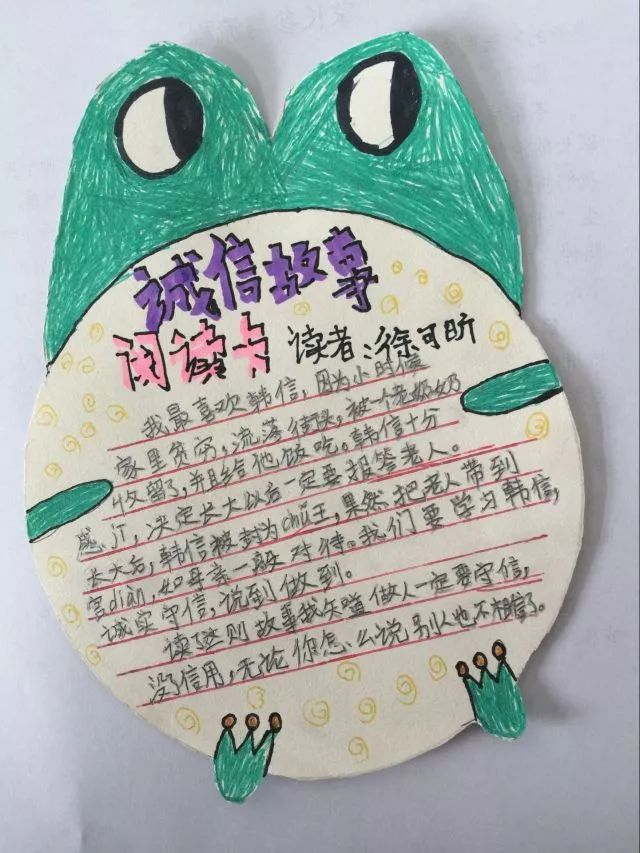 诚信故事
阅读卡 读者:徐可昕
我最喜欢韩信,因为小时候
家里贫穷,流落街头,被一个老奶奶
收留了,并且给他饭吃。韩信十分
感iī,决定长大以后一定要报答老人。
长大后,韩信被封为chǔ王,果然把老人带到
宫diàn,如母亲一般对待。我们要学习韩信,
诚实守信,说到做到。
读了这则故事我知道做人一定要守信,
没了信用,无论你怎么说别人也不相信了。